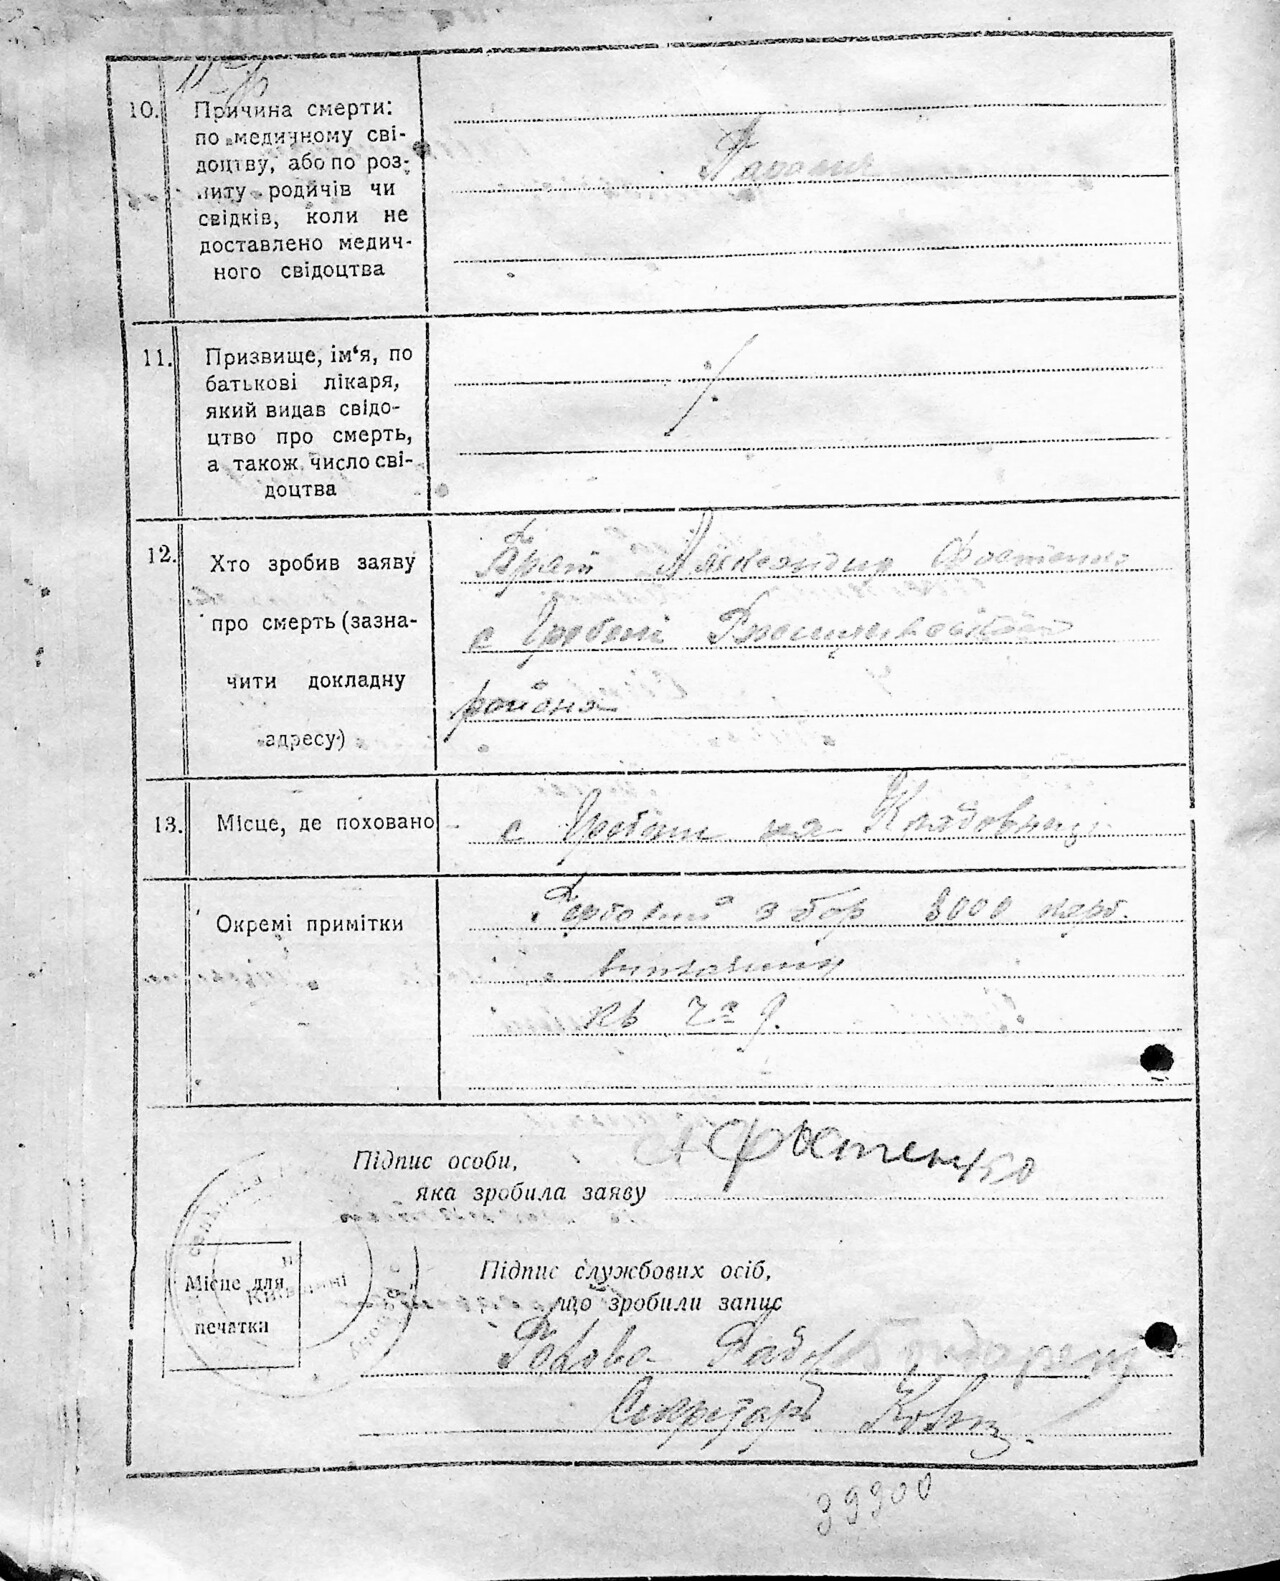 10.
Причина смерти:
по медичному сві-
доцтву, або по роз-
питу родичів чи
свідків, коли не
доставлено медич-
ного свідоцтва
11.
Призвище, ім‘я, по
батькові лікаря,
який видав свідо-
цтво про смерть,
а також число сві-
доцтва
12.
Хто зробив заяву
про смерть (зазна-
чити докладну
адресу)
Брат Александир Фостенко
с Гребені
района
13.
Місце, де поховано
с Гребені на Кладовищі
Окремі примітки
збор 3000 карб.
кв
Підпис особи,
яка зробила заяву
А Фостенко
Місце для
печатки
Підпис службових осіб,
що зробили запис
Голова
Секретарь
39900